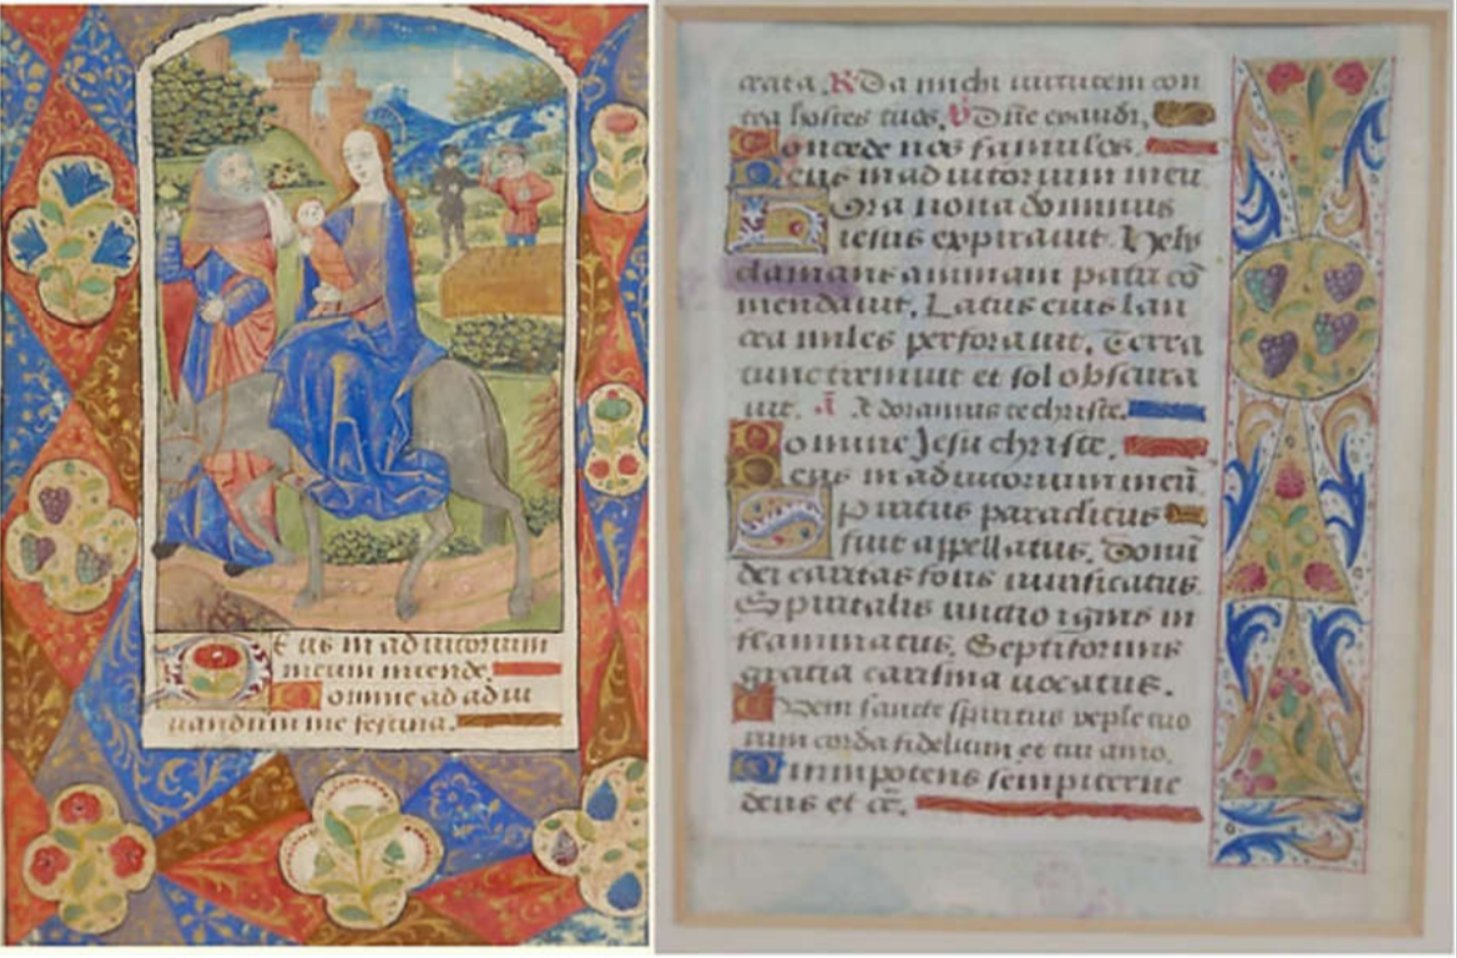 Eus in adiutorium
meum intende.
Domine ad adiu
uandum me festina.
crata. R Da michi uirtutem con
tra hostes tuos. V Dñe exaudi,
Concede nos famulos.
Deus in adiutorium meu
Hora nona dominus
iesus expirauit. Hely
clamans animam patri cō
mendauit. Latus eius lan
cea miles perforauit. Terra
tunc tremuit et sol obscura
uit. ā Adoramus te christe.
Domine Jesu christe.
Deus in adiutorium meū
Spiritus paraclitus
fuit appellatus. Donū
dei caritas fons uiuificatus.
Spiritalis unctio ignis in
flammatus. Septiformis
gratia carisma uocatus.
Veni sancte spiritus reple tuo
rum corda fidelium et tui amo.
Omnipotens sempiterne
deus et cē.